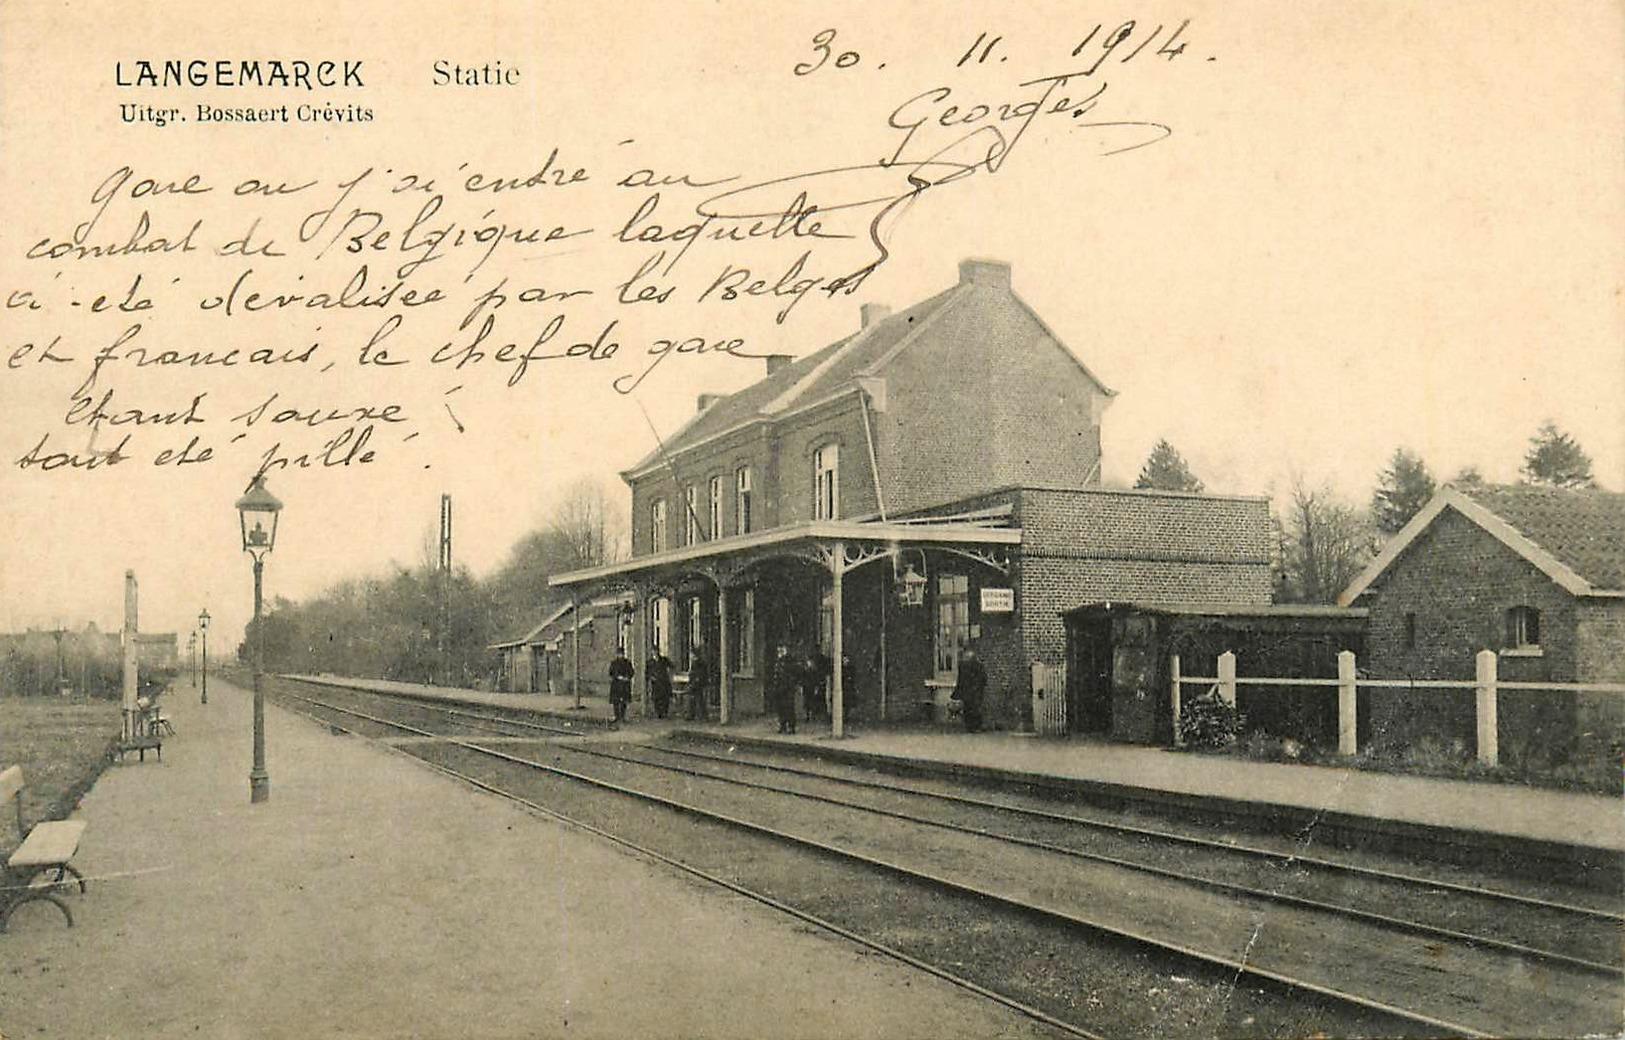 30. 11. 1914.
LANGEMARCK Statie
Uitgr. Bossaert Crévits
Georges
Gare ou j'ai entré au
combat de Belgique laquelle
a été dévalisée par les Belges
et francais, le chef de gare
étant sauvé
tout été pillé.
UITGANG
SORTIE